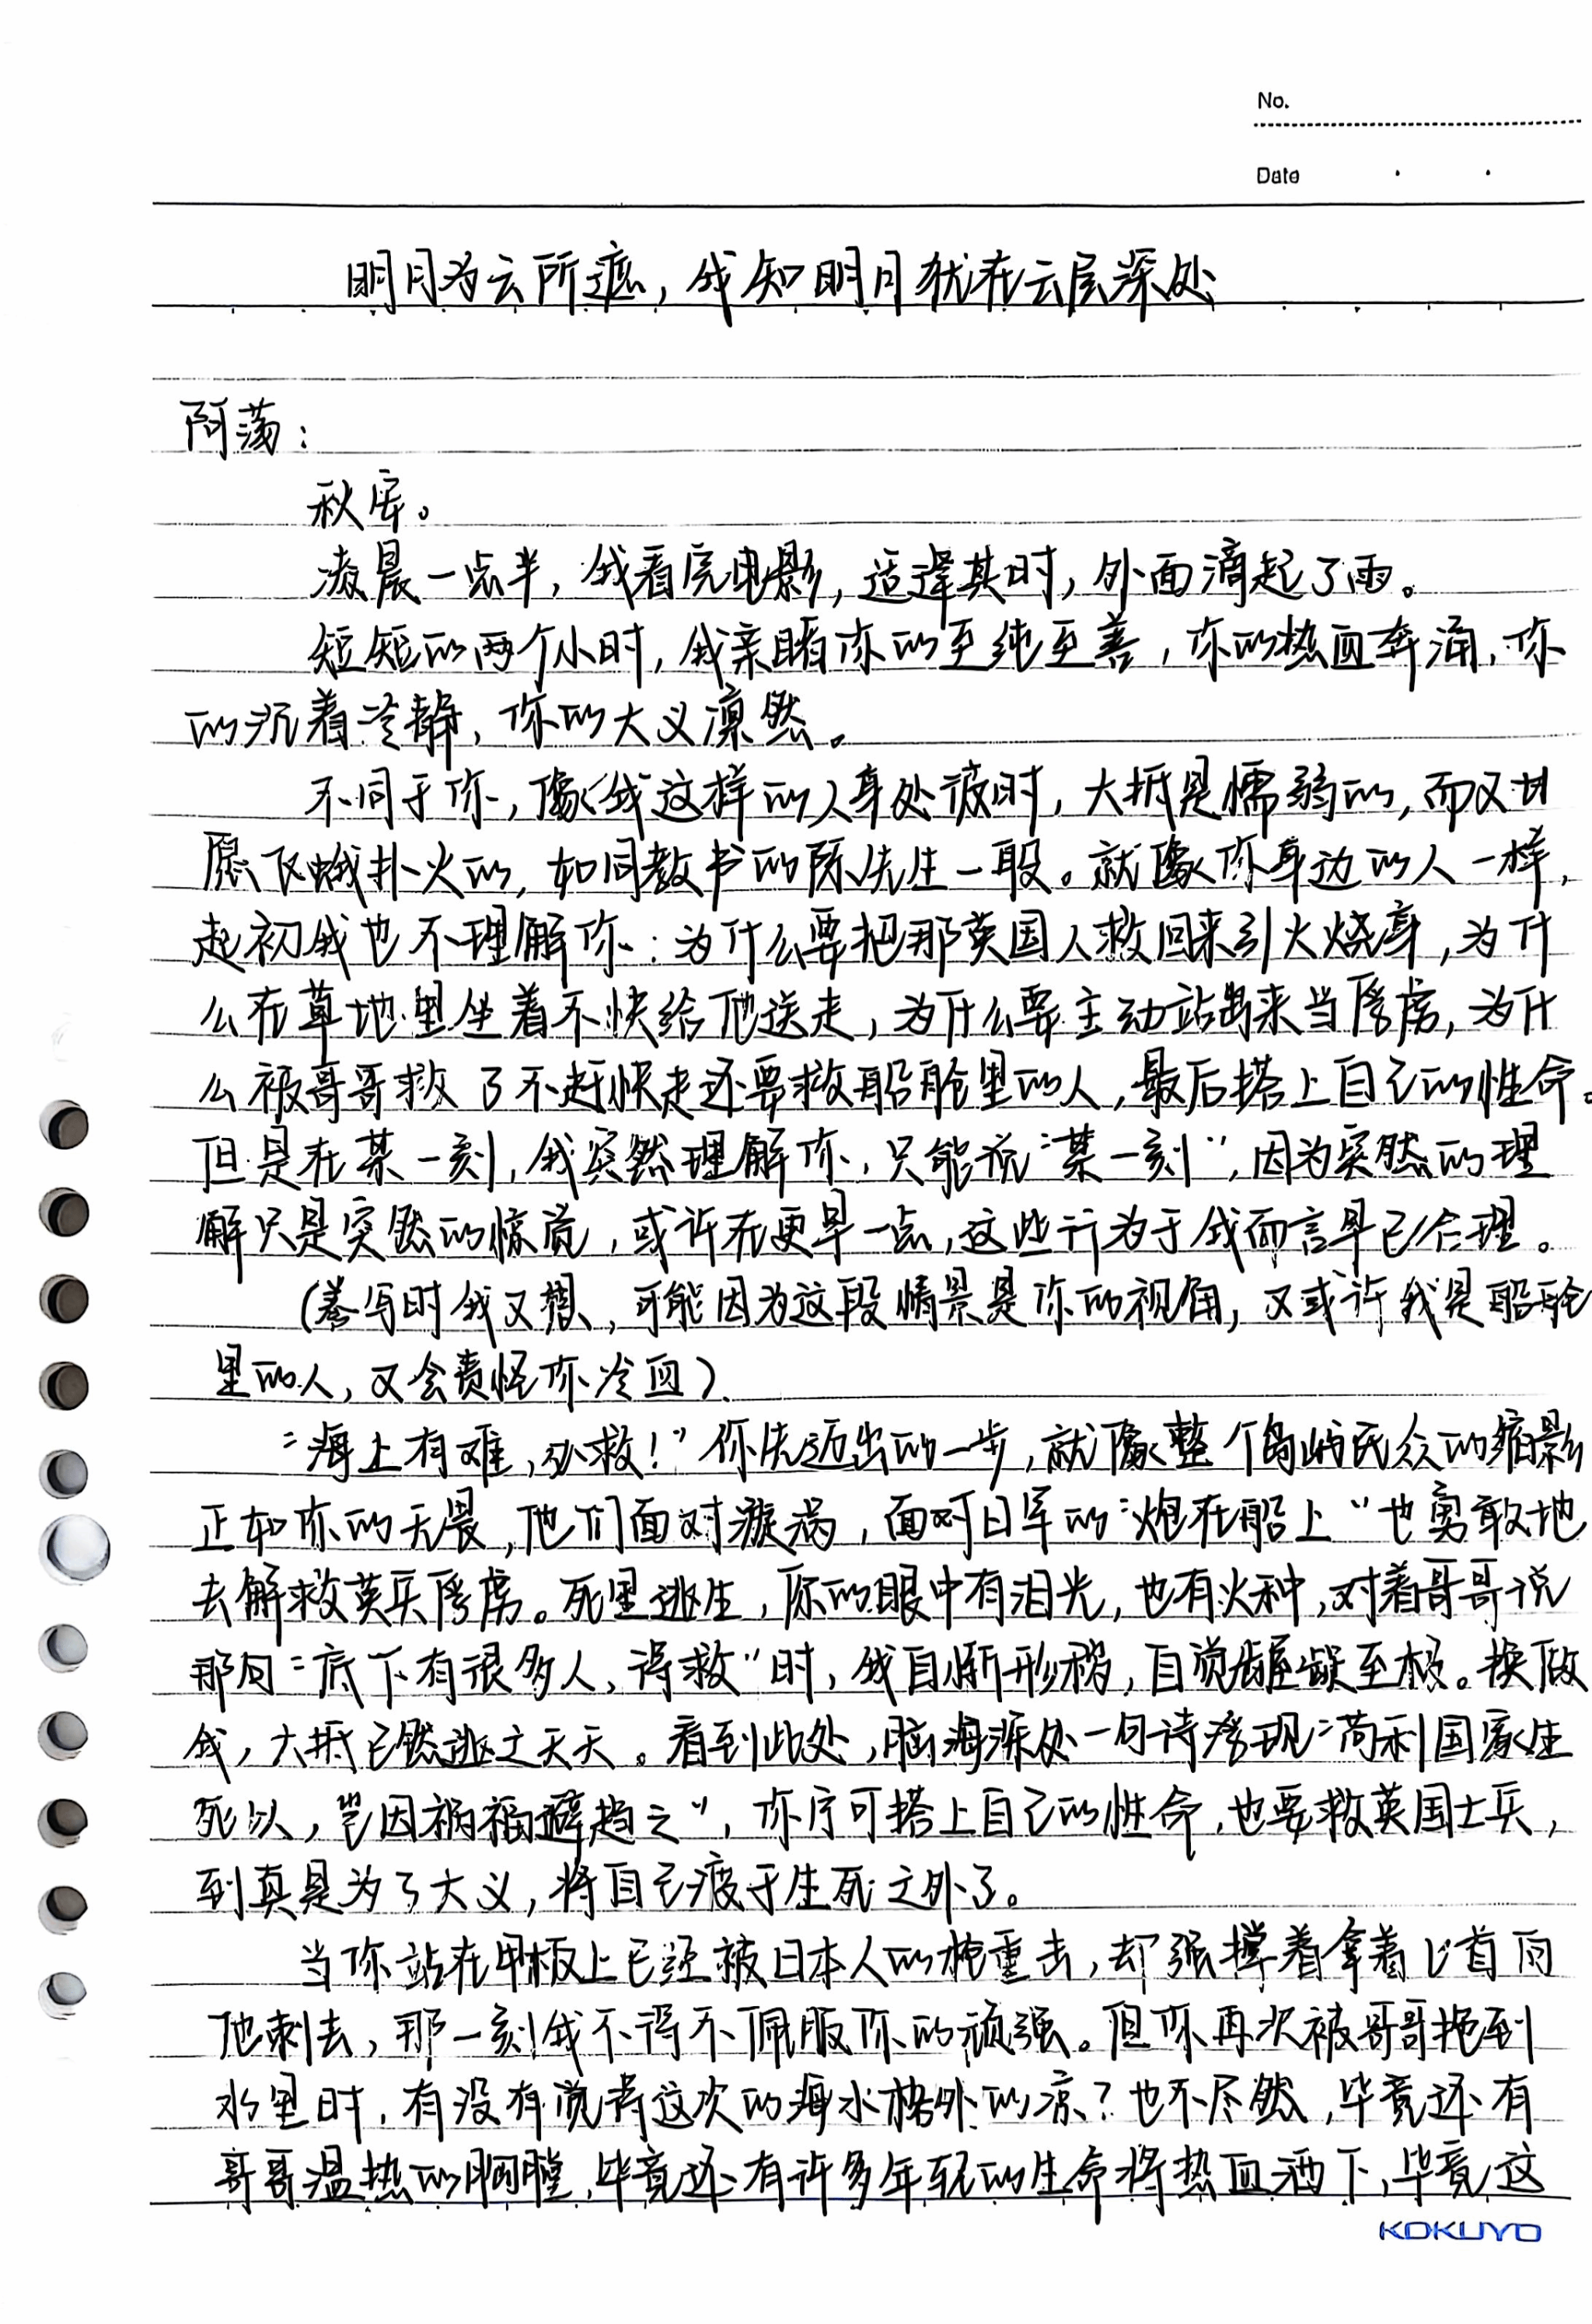 No.
Date
明月为云所遮，我知明月犹在云层深处
阿荡：
秋安。
凌晨一点半，我看完电影，适逢其时，外面滴起了雨。
短短的两个小时，我亲睹你的至纯至善，你的热血奔涌，你
的沉着冷静，你的大义凛然。
不同于你，像我这样的人身处彼时，大抵是懦弱的，而又甘
愿飞蛾扑火的，如同教书的陈先生一般。就像你身边的人一样，
起初我也不理解你：为什么要把那英国人救回来引火烧身，为什
么在草地里坐着不快给他送走，为什么要主动站出来当俘虏，为什
么被哥哥救了不赶快走还要救船舱里的人，最后搭上自己的性命。
但是在某一刻，我突然理解你，只能说“某一刻”，因为突然的理
解只是突然的惊觉，或许在更早一点，这些行为于我而言早已合理。
（誊写时我又想，可能因为这段情景是你的视角，又或许我是船舱
里的人，又会责怪你冷血）
“海上有难，必救！”你先迈出的一步，就像整个岛屿民众的缩影
正如你的无畏，他们面对漩涡，面对日军的“炮在船上”也勇敢地
去解救英兵俘虏。死里逃生，你的眼中有泪光，也有火种，对着哥哥说
那句“底下有很多人，得救”时，我自惭形秽，自觉龌龊至极。换做
我，大抵已然逃之夭夭。看到此处，脑海深处一句诗涌现“苟利国家生
死以，岂因祸福避趋之”，你宁可搭上自己的性命，也要救英国士兵，
到真是为了大义，将自己疲于生死之外了。
当你站在甲板上已经被日本人的枪重击，却强撑着拿着匕首向
他刺去，那一刻我不得不佩服你的顽强。但你再次被哥哥抱到
水里时，有没有觉得这次的海水格外的凉？也不尽然，毕竟还有
哥哥温热的胸膛，毕竟还有许多年轻的生命将热血洒下，毕竟这
KOKUYO